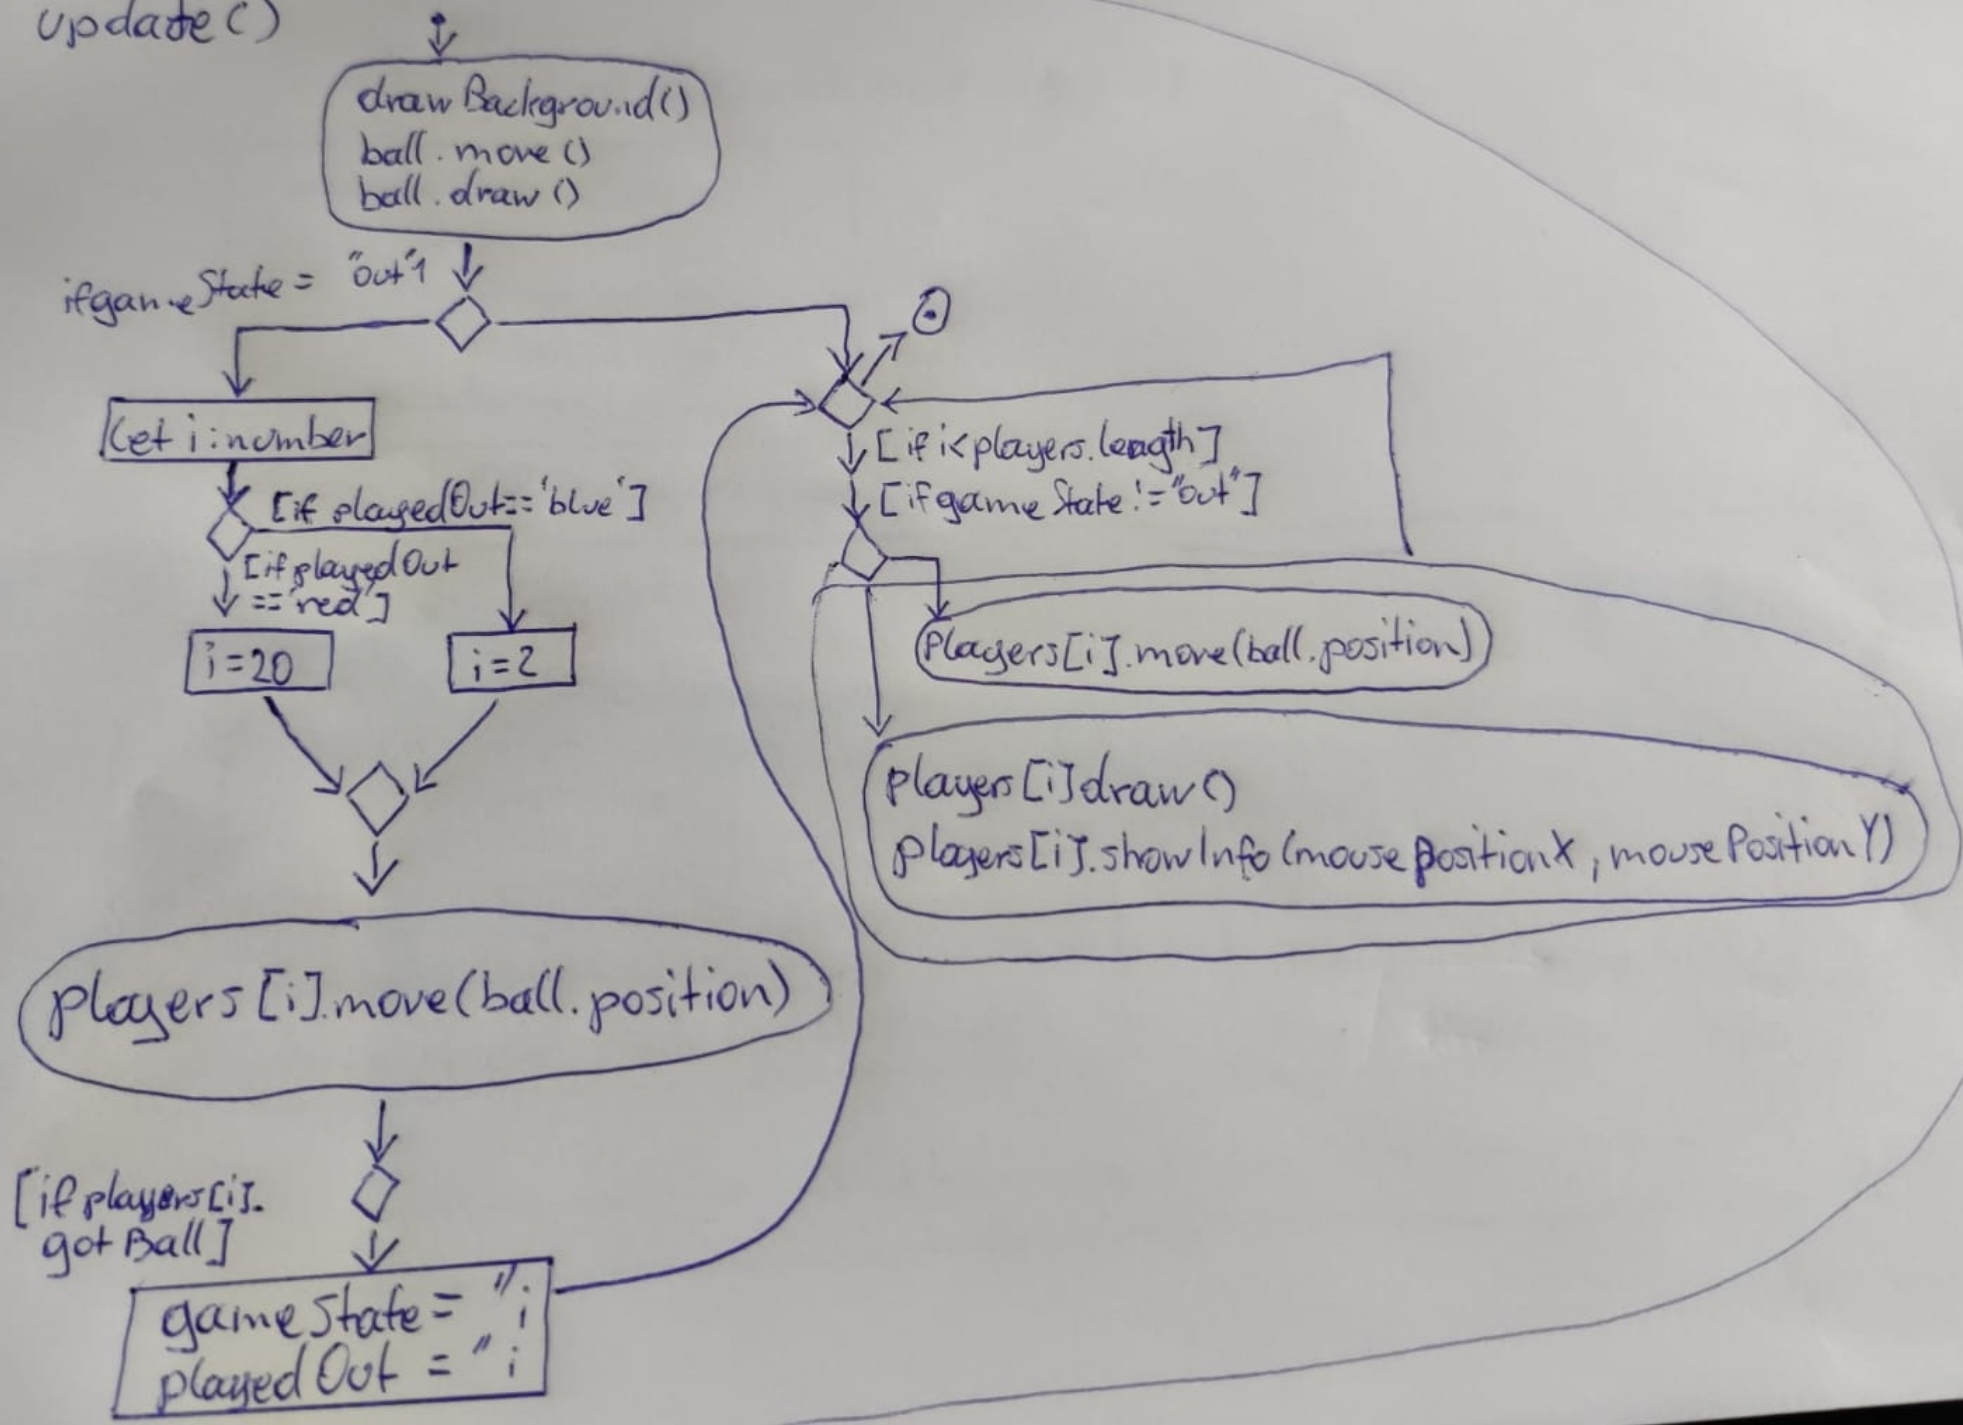 update()
drawBackground()
ball.move()
ball.draw()
if gameState = "out"1
let i:number
[if playedOut=='blue']
[if playedOut
=='red']
i=20
i=2
players[i].move(ball.position)
[if players[i].
gotBall]
gameState = '';
playedOut = '';
[if i<players.length]
[if gameState != "out"]
Players[i].move(ball.position)
players[i]draw()
players[i].showInfo(mousePositionX, mousePositionY)